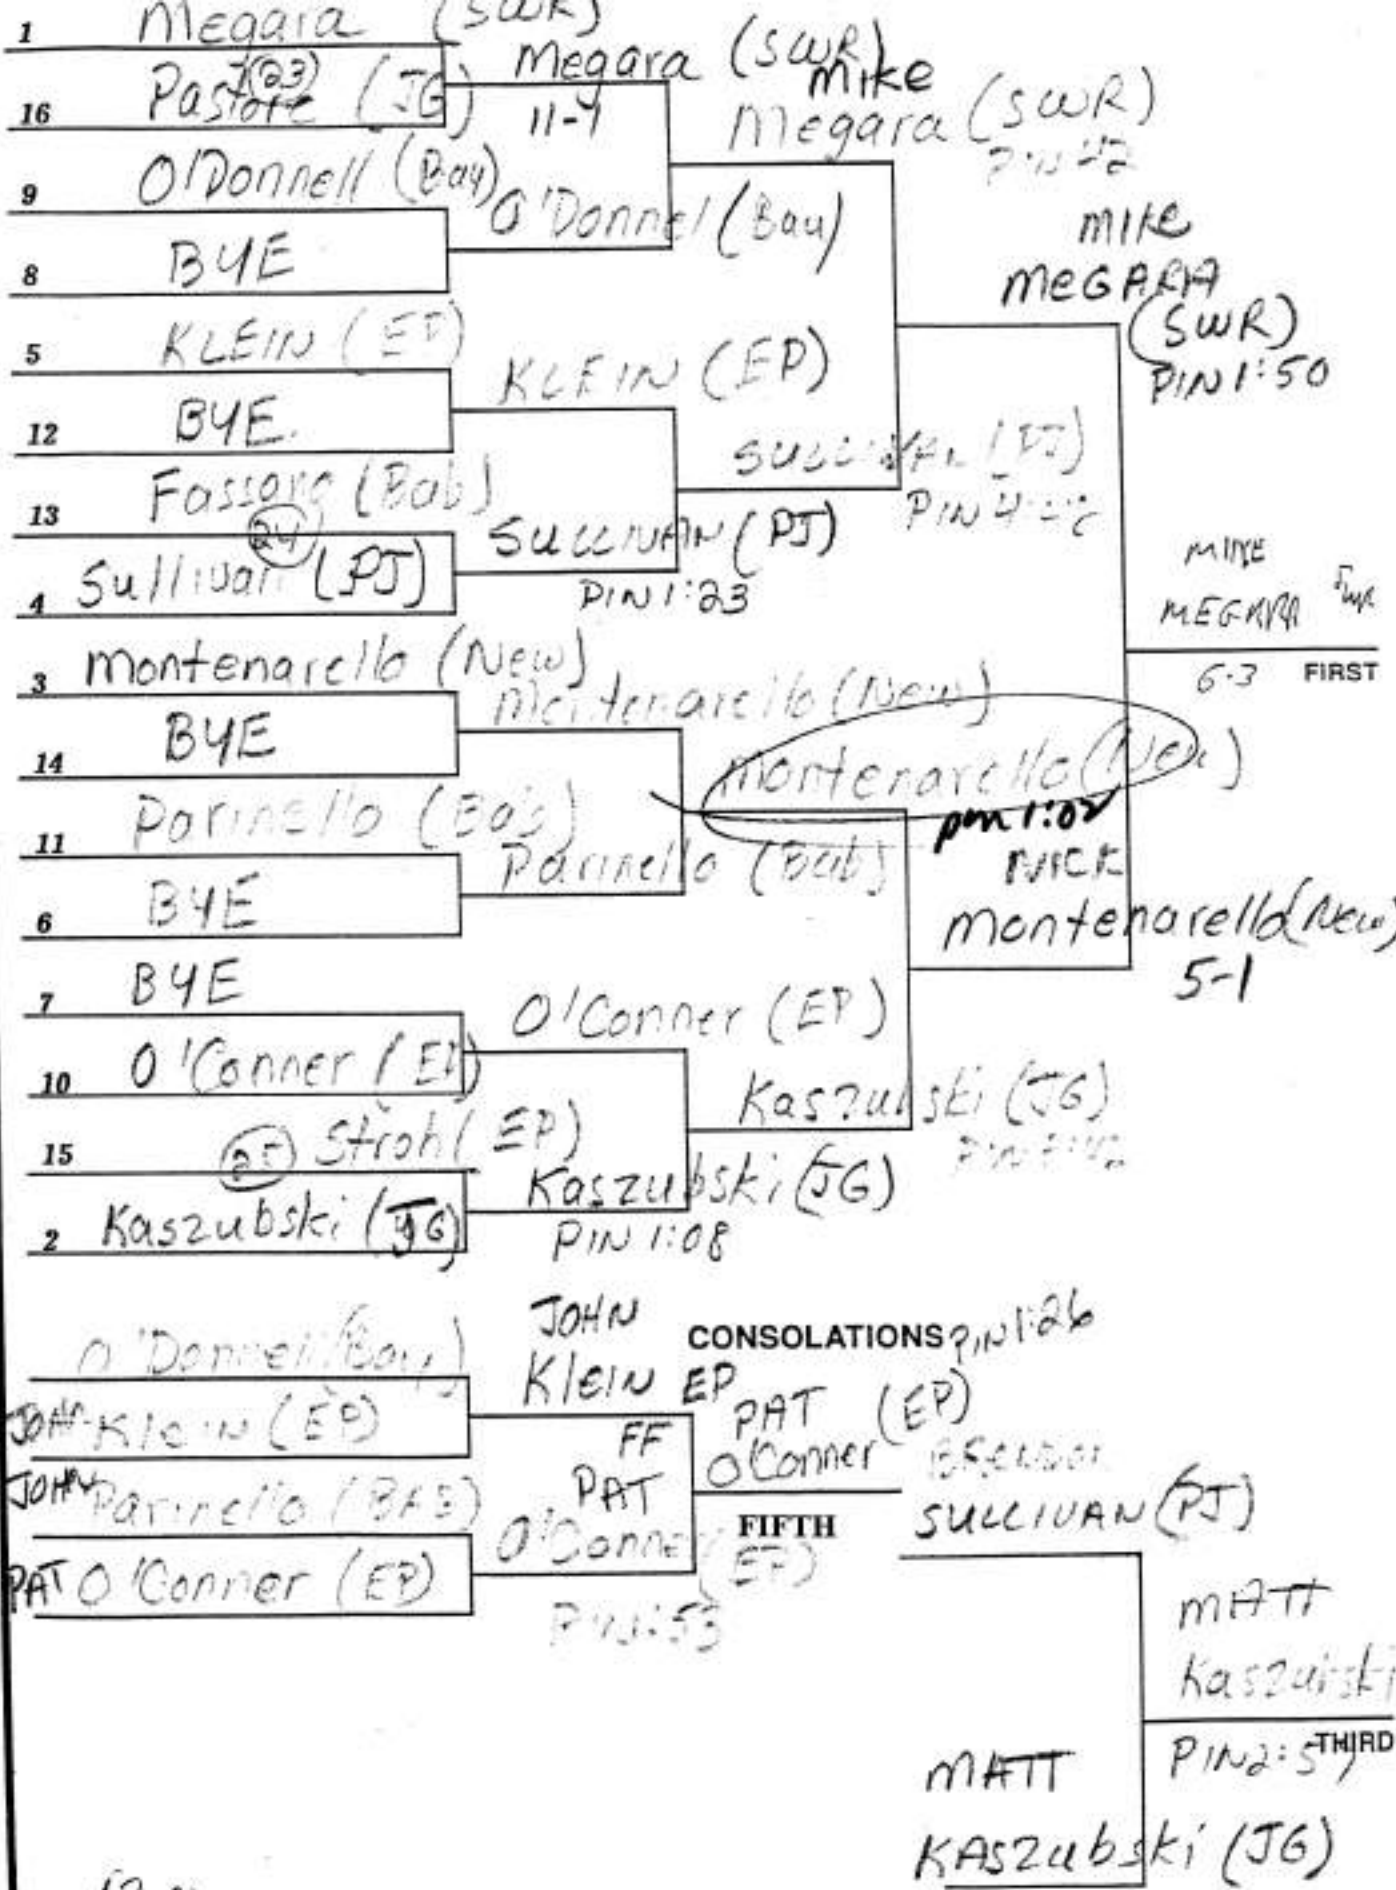 1 Megara (SWR)
16 Pastore (JG)
(23)
9 O'Donnell (Bay)
8 BYE
5 KLEIN (EP)
12 BYE
13 Fassora (Bab)
(24)
4 Sullivan (PJ)
3 Montenarello (New)
14 BYE
11 Parinello (Bab)
6 BYE
7 BYE
10 O'Conner (EP)
15 (25) Stroh (EP)
2 Kaszubski (JG)
Megara (SWR)
11-4
O'Donnel (Bay)
KLEIN (EP)
SULLIVAN (PJ)
PIN 1:23
Montenarello (New)
Parinello (Bab)
O'Conner (EP)
Kaszubski (JG)
PIN 1:08
Mike
Megara (SWR)
SULLIVAN (PJ)
Montenarello (New)
pin 1:02
Kaszubski (JG)
MIKE
MEGARA
(SWR)
PIN 1:50
NICK
Montenarello (New)
5-1
MIKE
MEGARA SWR
6-3 FIRST
CONSOLATIONS
O'Donnell (Bay)
JOHN Klein (EP)
JOHN Parinello (BAB)
PAT O'Conner (EP)
JOHN
Klein EP
FF
PAT
O'Conner (EP)
PIN 1:26
PAT (EP)
O'Conner
FIFTH
SULLIVAN (PJ)
MATT
KASzubski (JG)
MATT
Kaszubski
PIN 2:5
THIRD